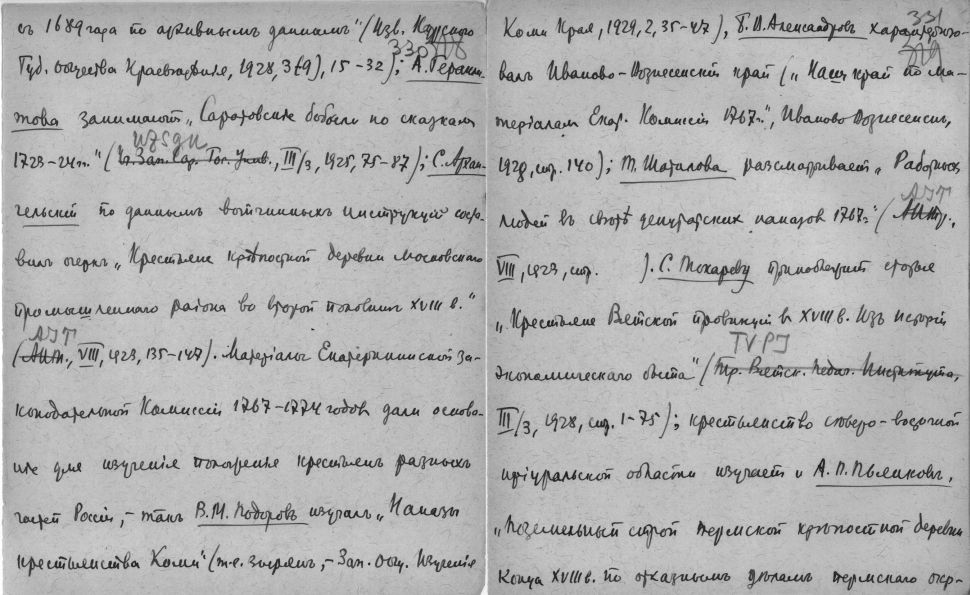 съ 1689 года по архивнымъ даннымъ" (Изв. Курскаго
330 318
Губ. Общества Краеведенія, 1928, 3-9), 15-32); А. Геракли-
това занимают „Саратовские бобыли по сказкам
UZSGU
1723-24 гг." (Уч. Зап. Сар. Гос. Унив., III/3, 1925, 75-87); С. Архан-
гельскій по даннымъ вотчинныхъ инструкцій соста-
вилъ очеркъ „Крестьяне крѣпостной деревни Московскаго
промышленнаго района во второй половинѣ XVIII в."
AIT
(АИТ., VIII, 1923, 135-147). Матеріалы Екатерининской За-
конодательной Комиссіи 1767-1774 годовъ дали основа-
ніе для изученія положенія крестьянъ разныхъ
частей Россіи, – такъ В. М. Подоровъ изучалъ „Наказы
крестьянства Коми" (т.е. зырянъ, – Зап. Общ. Изученія
331
Коми Края, 1929, 2, 35-47), Александровъ характеризо-
319
валъ Иваново-Вознесенскій край („Нашъ край по ма-
теріалам Екат. Комиссіи 1767 г.", Иваново-Вознесенскъ,
1928, стр. 140); Т. Шаталова разсматривает „Рабочихъ
AIT
людей въ свѣтѣ депутатскихъ наказов 1767 г." (АИТр.,
VIII, 1923, стр. ). С. Токареву принадлежитъ статья
„Крестьяне Вятской провинціи в XVIII в. Изъ исторіи
TVPI
экономическаго быта" (Тр. Вятск. Педаг. Института,
III/3, 1928, стр. 1-75); крестьянство сѣверо-восточной
пріуральской области изучает и А. П. Пьянковъ,
„Поземельный строй пермской крѣпостной деревни
конца XVIII в. по отказнымъ дѣламъ пермскаго окр-